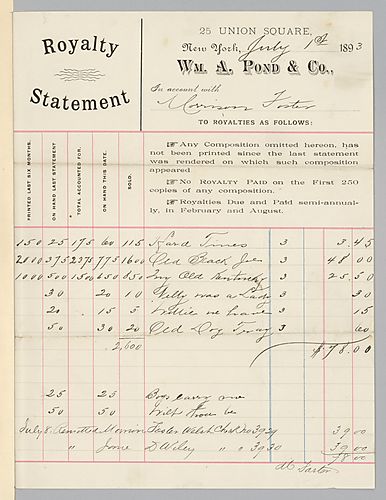 Royalty
Statement
25 UNION SQUARE,
New York, July 1st 1893
WM. A. POND & CO.,
In account with
Morrison Foster
TO ROYALTIES AS FOLLOWS:
☞ Any Composition omitted hereon, has
not been printed since the last statement
was rendered on which such composition
appeared
☞ No ROYALTY PAID on the First 250
copies of any composition.
☞ Royalties Due and Paid semi-annual-
ly, in February and August.
PRINTED LAST SIX MONTHS.
ON HAND LAST STATEMENT
TOTAL ACCOUNTED FOR.
ON HAND THIS DATE.
SOLD.
150 25 175 60 115 Hard Times 3 3.45
2000 375 2375 775 1600 Old Black Joe 3 48 00
1000 500 1500 650 850 My Old Kentucky 3 25.50
30 20 10 Nelly was a Lady 3 30
20 15 5 Willie we have 3 15
50 30 20 Old Dog Tray 3 60
2,600 $78.00
25 25 Boys carry me
50 50 Wilt thou be
July 8. Remitted Morrison Foster Welsh Check no 3929 39 00
" " D Wiley " " 3930 39 00
78 00